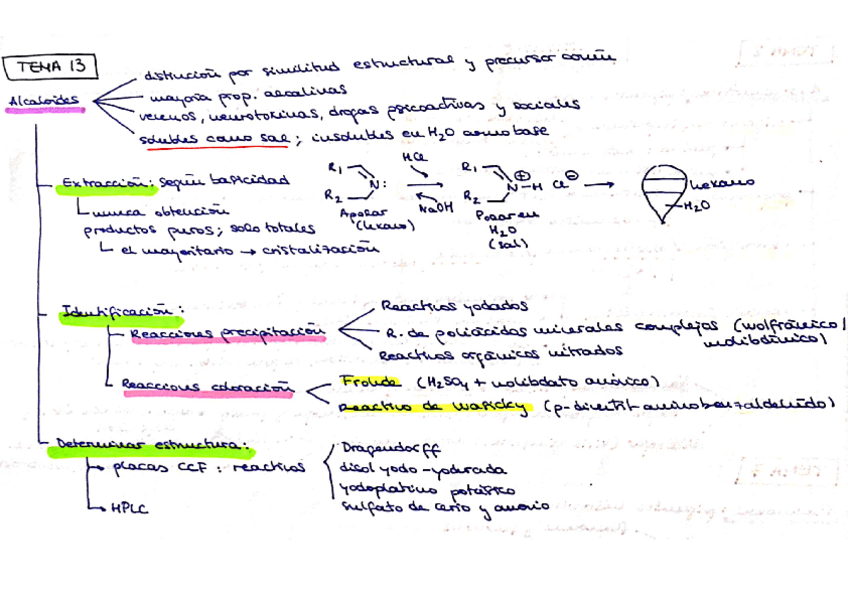 TEMA 13
Alcaloides
distinción por similitud estructural y precursor común
mayoría prop. alcalinas
venenos, neurotoxinas, drogas psicoactivas y sociales
solubles como sal; insolubles en H2O como base
Extracción: según basicidad
nunca obtención
productos puros; solo totales
el mayoritario → cristalización
R1
R2
N:
Apolar
(hexano)
HCl
NaOH
R1
R2
N⊕-H Cl⊖
Polar en
H2O
(sal)
hexano
H2O
Identificación:
Reacciones precipitación
Reactivos yodados
R. de poliácidos minerales complejos (wolfrámico/
molibdénico)
Reactivos orgánicos nitrados
Reacciones coloración
Fröhde (H2SO4 + molibdato amónico)
Reactivo de Wasicky (p-dimetil-aminobenzaldehído)
Determinar estructura:
placas CCF: reactivos
Dragendorff
disol yodo-yodurada
yodoplatino potásico
sulfato de cerio y amonio
HPLC